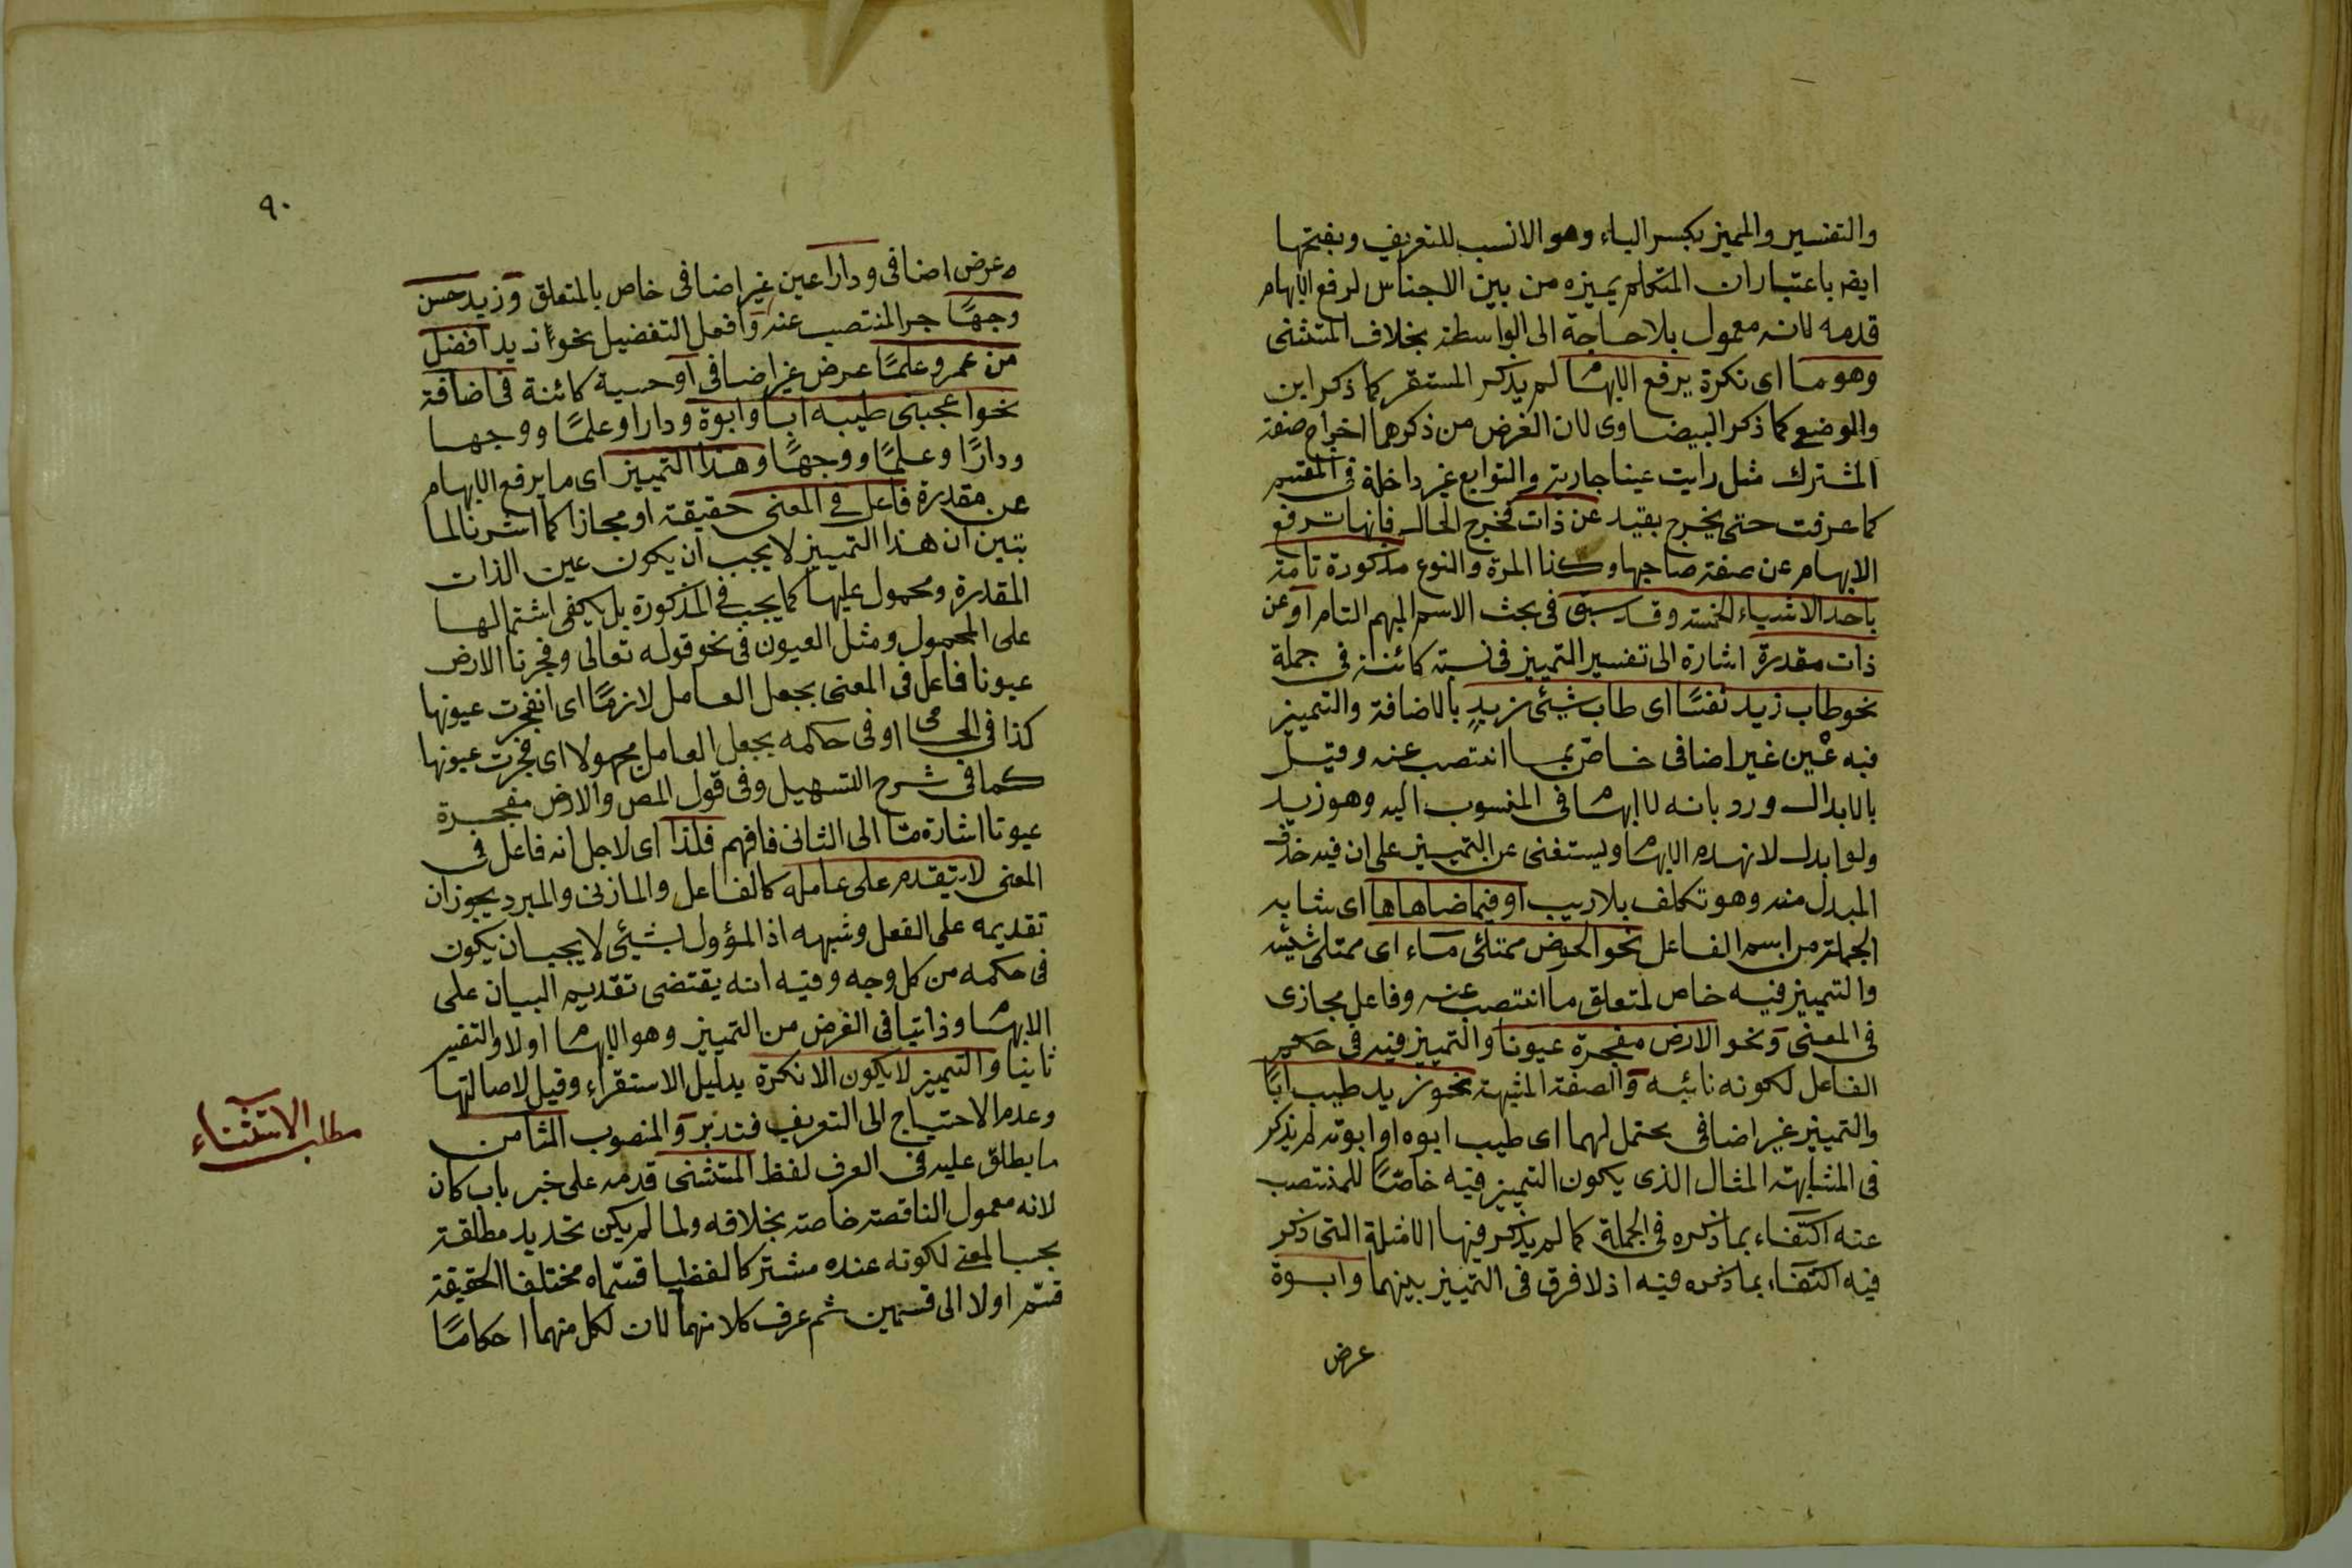 والتفسير والمميز بكسر الياء وهو الانسب للتعريف وبفتحها
ايضا باعتبار ان المتكلم يميزه من بين الاجناس لرفع الابهام
قدمه لانه معمول بلا حاجة الى الواسطة بخلاف المستثنى
وهو ما اى نكرة يرفع الابهام لم يذكر المستقر كما ذكر ابن
والوضعى كما ذكر البيضاوى لان الغرض من ذكرهما اخراج صفة
المشترك مثل رايت عينا جارية والتوابع غير داخلة فى المقسم
كما عرفت حتى يخرج بقيد عن ذات فخرج الحال فانها ترفع
الابهام عن صفة صاحبها وكذا المرة والنوع مذكورة تامة
باحد الاشياء الخمسة وقد سبق فى بحث الاسم المبهم التام او عن
ذات مقدرة اشارة الى تفسير التمييز فى نسبة كائنة فى جملة
نحو طاب زيد نفسًا اى طاب شيئ زيدٍ بالاضافة والتمييز
فيه عين غير اضافى خاص بما انتصب عنه وقيل
بالابدال ورد بانه لا ابهام فى المنسوب اليه وهو زيد
ولو ابدل لانهدم الابهام ويستغنى عن التمييز على ان فيه حذف
المبدل منه وهو تكلف بلا ريب او فيما ضاهاها اى شابه
الجملة من اسم الفاعل نحو الحوض ممتلئ ماء اى ممتلئ شيئه
والتمييز فيه خاص لمتعلق ما انتصب عنه وفاعل مجازى
فى المعنى ونحو الارض مفجرة عيونا والتمييز فيه فى حكم
الفاعل لكونه نائبه والصفة المشبهة نحو زيد طيب ابًا
والتمييز غير اضافى يحتمل لهما اى طيب ابوه او ابوته لم يذكر
فى المشابهة المثال الذى يكون التمييز فيه خاصًا للمنتصب
عنه اكتفاء بما ذكره فى الجملة كما لم يذكر فيها الامثلة التى ذكر
فيه اكتفاء بما ذكره فيه اذ لا فرق فى التمييز بينهما وابوة
عرض
٩٠
عرض اضافى ودارا عين غير اضافى خاص بالمتعلق وزيد حسن
وجهًا جر المنتصب عنه وافعل التفضيل نحو زيد افضل
من عمرو علمًا عرض غير اضافى او حسية كائنة فى اضافة
نحو اعجبنى طيبه ابا وابوة ودارا وعلمًا ووجها
ودارًا وعلمًا ووجهًا وهذا التمييز اى ما يرفع الابهام
عن مقدرة فاعل فى المعنى حقيقة او مجازا كما اشرنا لما
تبين ان هذا التمييز لا يجب ان يكون عين الذات
المقدرة ومحمول عليها كما يجب فى المذكورة بل يكفى اشتمالها
على المحمول ومثل العيون فى نحو قوله تعالى وفجرنا الارض
عيونا فاعل فى المعنى بجعل العامل لازمًا اى انفجرت عيونها
كذا فى الجامى او فى حكمه بجعل العامل مجهولا اى فجرت عيونها
كما فى شرح التسهيل وفى قول المص والارض مفجرة
عيونا اشارة ما الى الثانى فافهم فلذا اى لاجل انه فاعل فى
المعنى لا يتقدم على عامله كالفاعل والمازنى والمبرد يجوزان
تقديمه على الفعل وشبهه اذ المؤول بشيئ لا يجب ان يكون
فى حكمه من كل وجه وفيه انه يقتضى تقديم البيان على
الابهام وذا ينافى الغرض من التمييز وهو الابهام اولا والتفسير
ثانيا والتمييز لا يكون الا نكرة بدليل الاستقراء وقيل لاصالتها
وعدم الاحتياج الى التعريف فتدبر والمنصوب الثامن
ما يطلق عليه فى العرف لفظ المستثنى قدمه على خبر باب كان
لانه معمول الناقصة خاصة بخلافه ولما لم يكن تحديد مطلقة
بحسب المعنى لكونه عنده مشتركا لفظيا قسماه مختلفا الحقيقة
قسم اولا الى قسمين ثم عرف كلا منهما لان لكل منهما احكامًا
مطلب الاستثناء